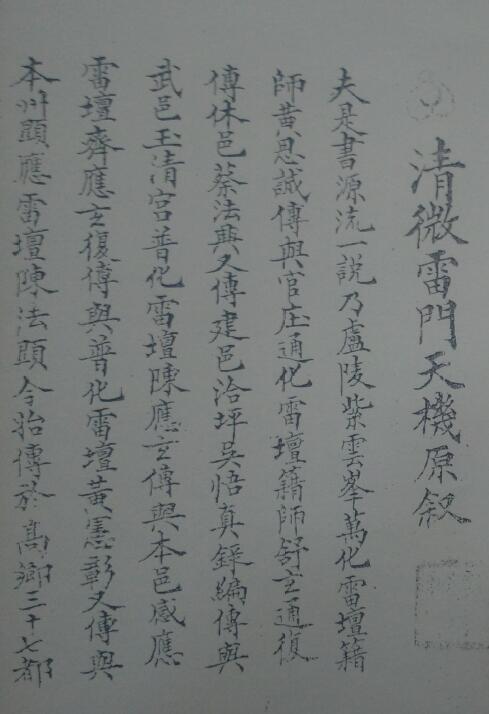 清微雷門天機原叙
夫是書源流一説乃盧陵紫雲峯萬化雷壇籍
師黄恩誠傳與官庄通化雷壇籍師舒玄通復
傳休邑蔡法興又傳建邑洽坪吳悟真録編傳與
武邑玉清宮普化雷壇陳應玄傳與本邑感應
雷壇齊應玄復傳與普化雷壇黄憲彰又傳與
本州顕應雷壇陳法顕今始傳於高鄉三十七都